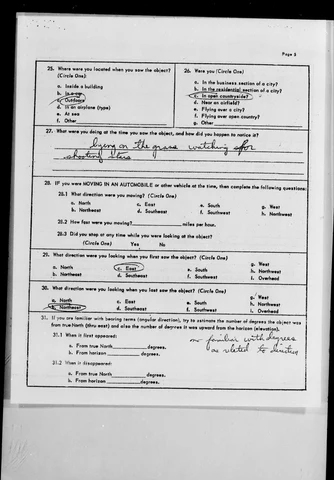 Page 2
25. Where were you located when you saw the object?
(Circle One)
a. Inside a building
b. In a car
c. Outdoors
d. In an airplane (type)
e. At sea
f. Other
26. Were you (Circle One)
a. In the business section of a city?
b. In the residential section of a city?
c. In open countryside?
d. Near an airfield?
e. Flying over a city?
f. Flying over open country?
g. Other
27. What were you doing at the time you saw the object, and how did you happen to notice it?
lying on the grass watching for
shooting stars
28. IF you were MOVING IN AN AUTOMOBILE or other vehicle at the time, then complete the following questions:
28.1 What direction were you moving? (Circle One)
a. North c. East e. South g. West
b. Northeast d. Southeast f. Southwest h. Northwest
28.2 How fast were you moving? miles per hour.
28.3 Did you stop at any time while you were looking at the object?
(Circle One) Yes No
29. What direction were you looking when you first saw the object? (Circle One)
a. North c. East e. South g. West
b. Northeast d. Southeast f. Southwest h. Northwest
i. Overhead
30. What direction were you looking when you last saw the object? (Circle One)
a. North c. East e. South g. West
b. Northeast d. Southeast f. Southwest h. Northwest
i. Overhead
31. If you are familiar with bearing terms (angular direction), try to estimate the number of degrees the object was
from true North (thru east) and also the number of degrees it was upward from the horizon (elevation).
31.1 When it first appeared:
a. From true North degrees.
b. From horizon degrees.
no familiar with degrees
as related to
31.2 When it disappeared:
a. From true North degrees.
b. From horizon degrees.